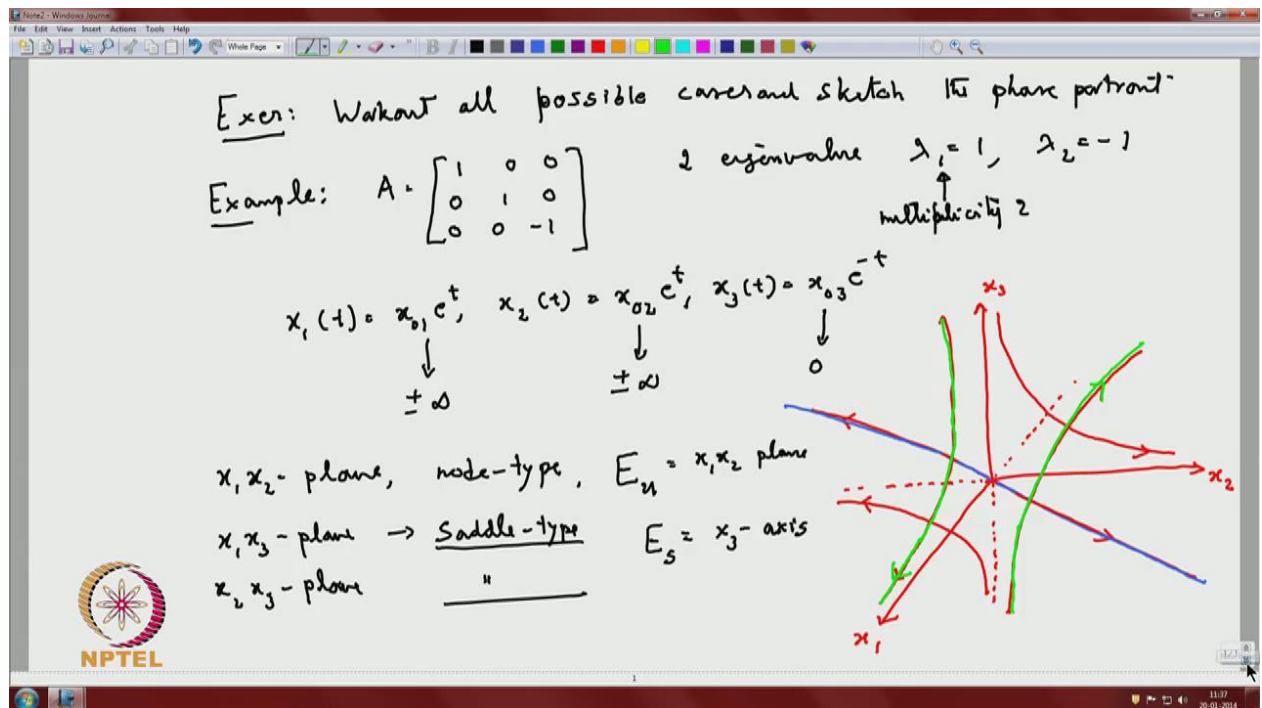 Note2 - Windows Journal
File Edit View Insert Actions Tools Help
Whole Page
B I
Exer: Workout all possible cases and sketch the phase portrait
Example: A = [1 0 0
0 1 0
0 0 -1]
2 eigenvalue λ₁ = 1, λ₂ = -1
multiplicity 2
x₁(t) = x₀₁ eᵗ, x₂(t) = x₀₂ eᵗ, x₃(t) = x₀₃ e⁻ᵗ
± ∞ ± ∞ 0
x₃
x₂
x₁
x₁x₂ - plane, node-type, E_u = x₁x₂ plane
x₁x₃ - plane → Saddle-type E_s = x₃ - axis
x₂x₃ - plane "
NPTEL
1
11:37
20-01-2014